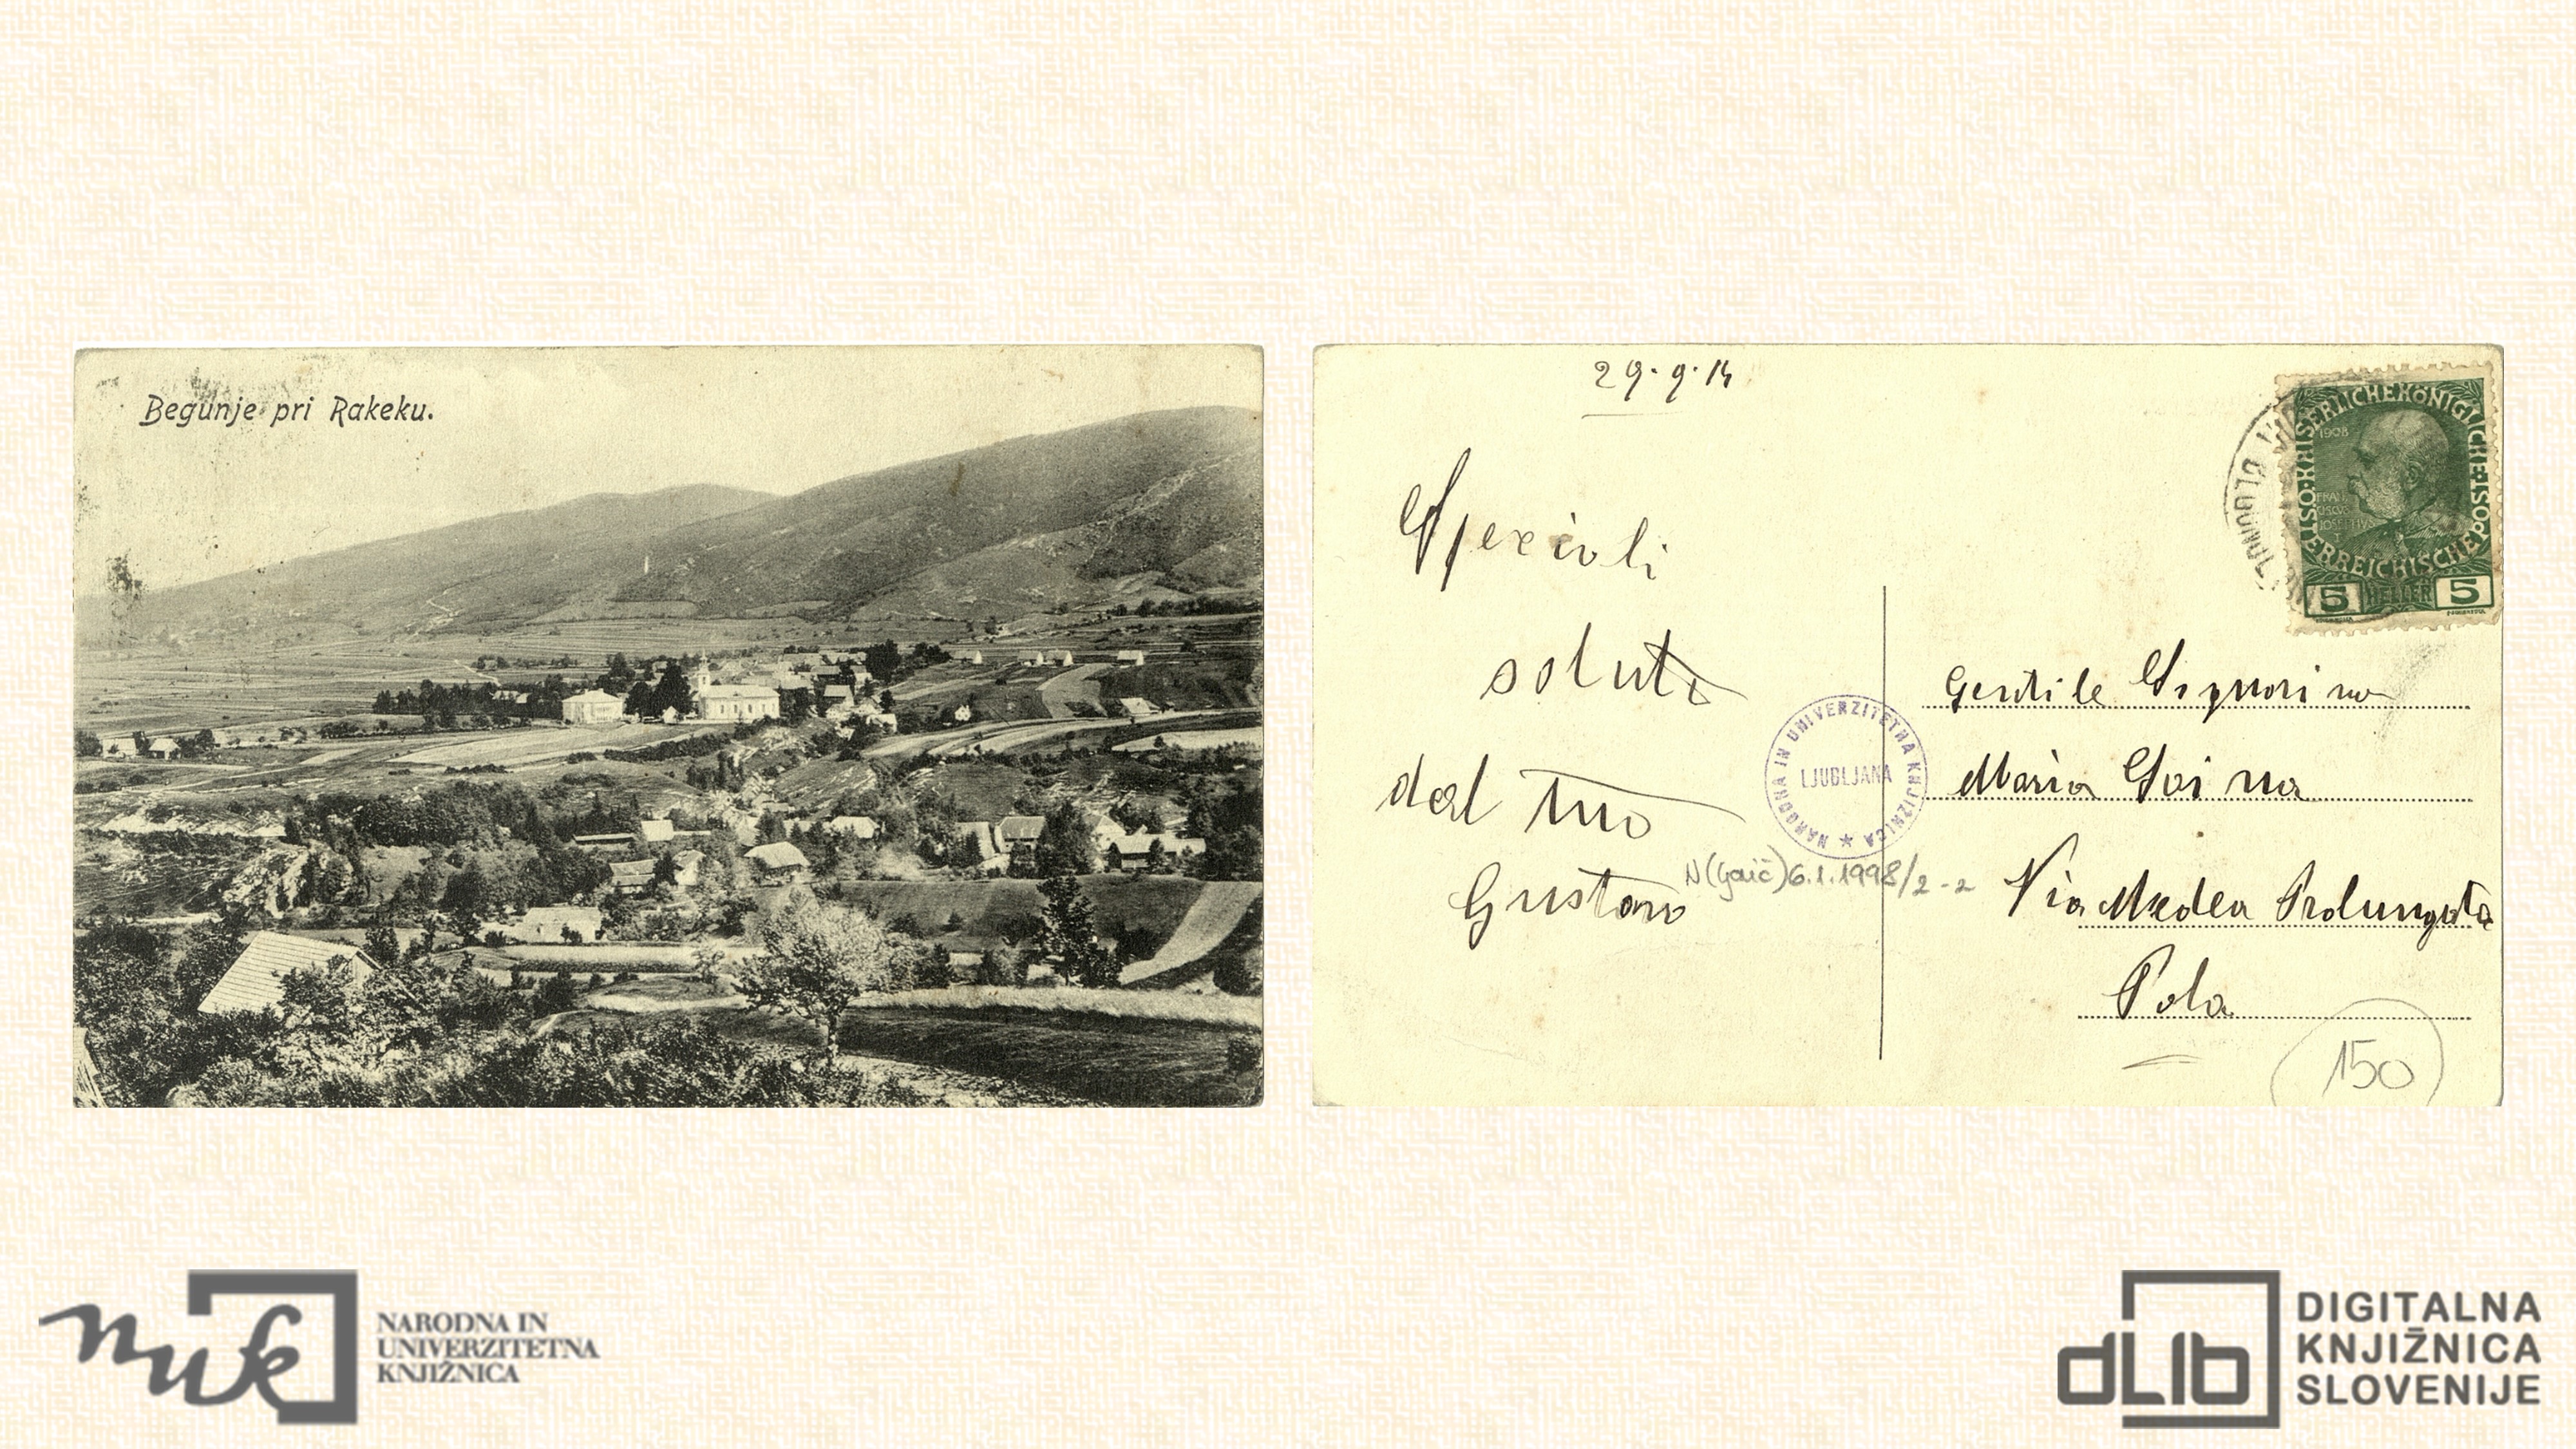 Begunje pri Rakeku.
29.9.14
Speciali
saluti
dal tuo
Gustavo
Gentile Signorina
Maria
Via Medea Prolungata
Pola
150
N(Gaič)6.1.1998/2-2
NARODNA IN UNIVERZITETNA KNJIŽNICA ★
LJUBLJANA
KAISERLICHE KÖNIGLICHE ÖSTERREICHISCHE POST
1908
FRANCISCVS
IOSEPHVS I
5 HELLER 5
NARODNA IN
UNIVERZITETNA
KNJIŽNICA
nuk
dLib
DIGITALNA
KNJIŽNICA
SLOVENIJE